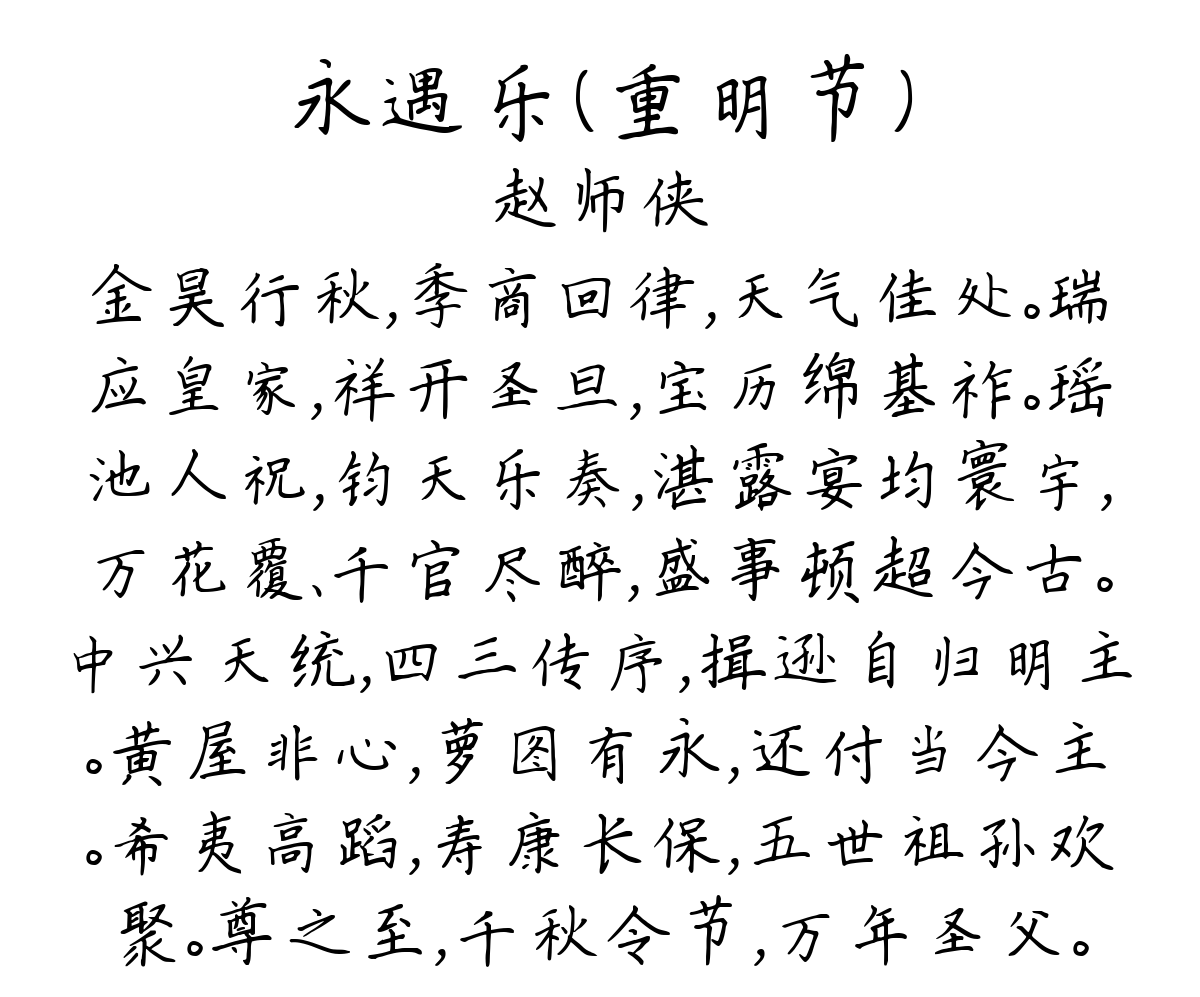 永遇乐(重明节)
赵师侠
金昊行秋,季商回律,天气佳处。瑞
应皇家,祥开圣旦,宝历绵基祚。瑶
池人祝,钧天乐奏,湛露宴均寰宇,
万花覆、千官尽醉,盛事顿超今古。
中兴天统,四三传序,揖逊自归明主
。黄屋非心,萝图有永,还付当今主
。希夷高蹈,寿康长保,五世祖孙欢
聚。尊之至,千秋令节,万年圣父。